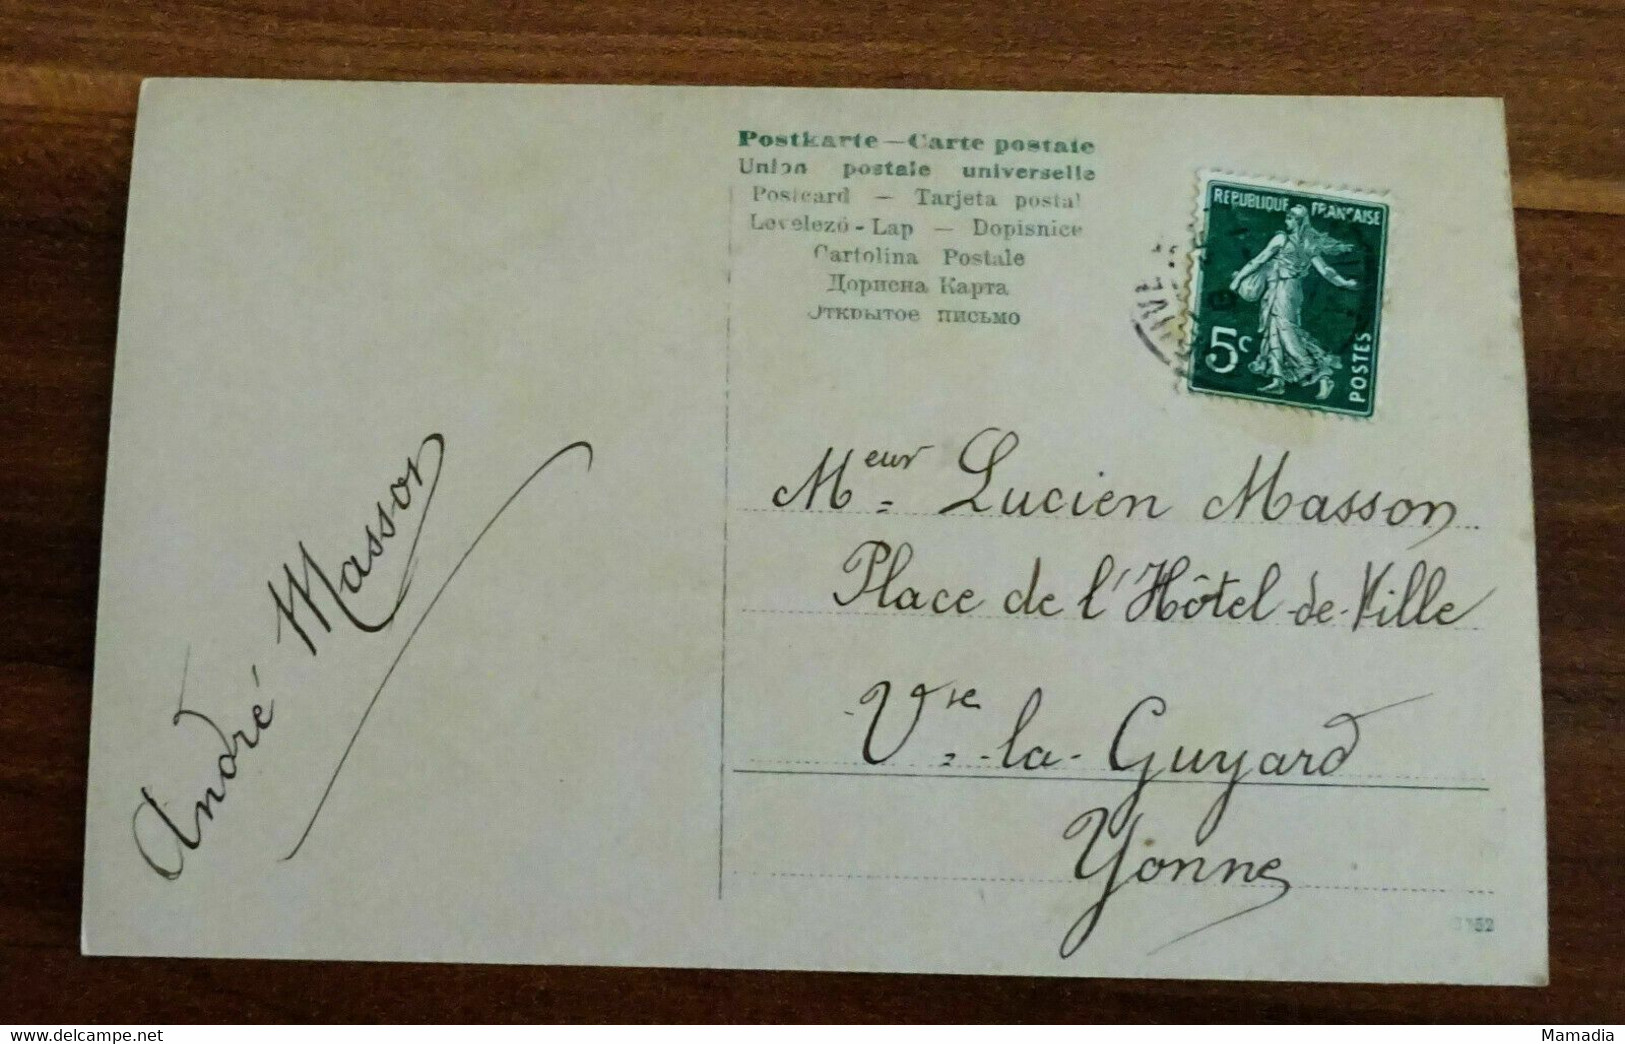 Postkarte — Carte postale
Union postale universelle
Postcard — Tarjeta postal
Levelező-Lap — Dopisnice
Cartolina Postale
Дописна Карта
Открытое письмо
REPUBLIQUE FRANÇAISE
5c
POSTES
Meur Lucien Masson
Place de l'Hôtel-de-Ville
Vve-la-Guyard
Yonne
André Masson
https://www.delcampe.net
Mamadia